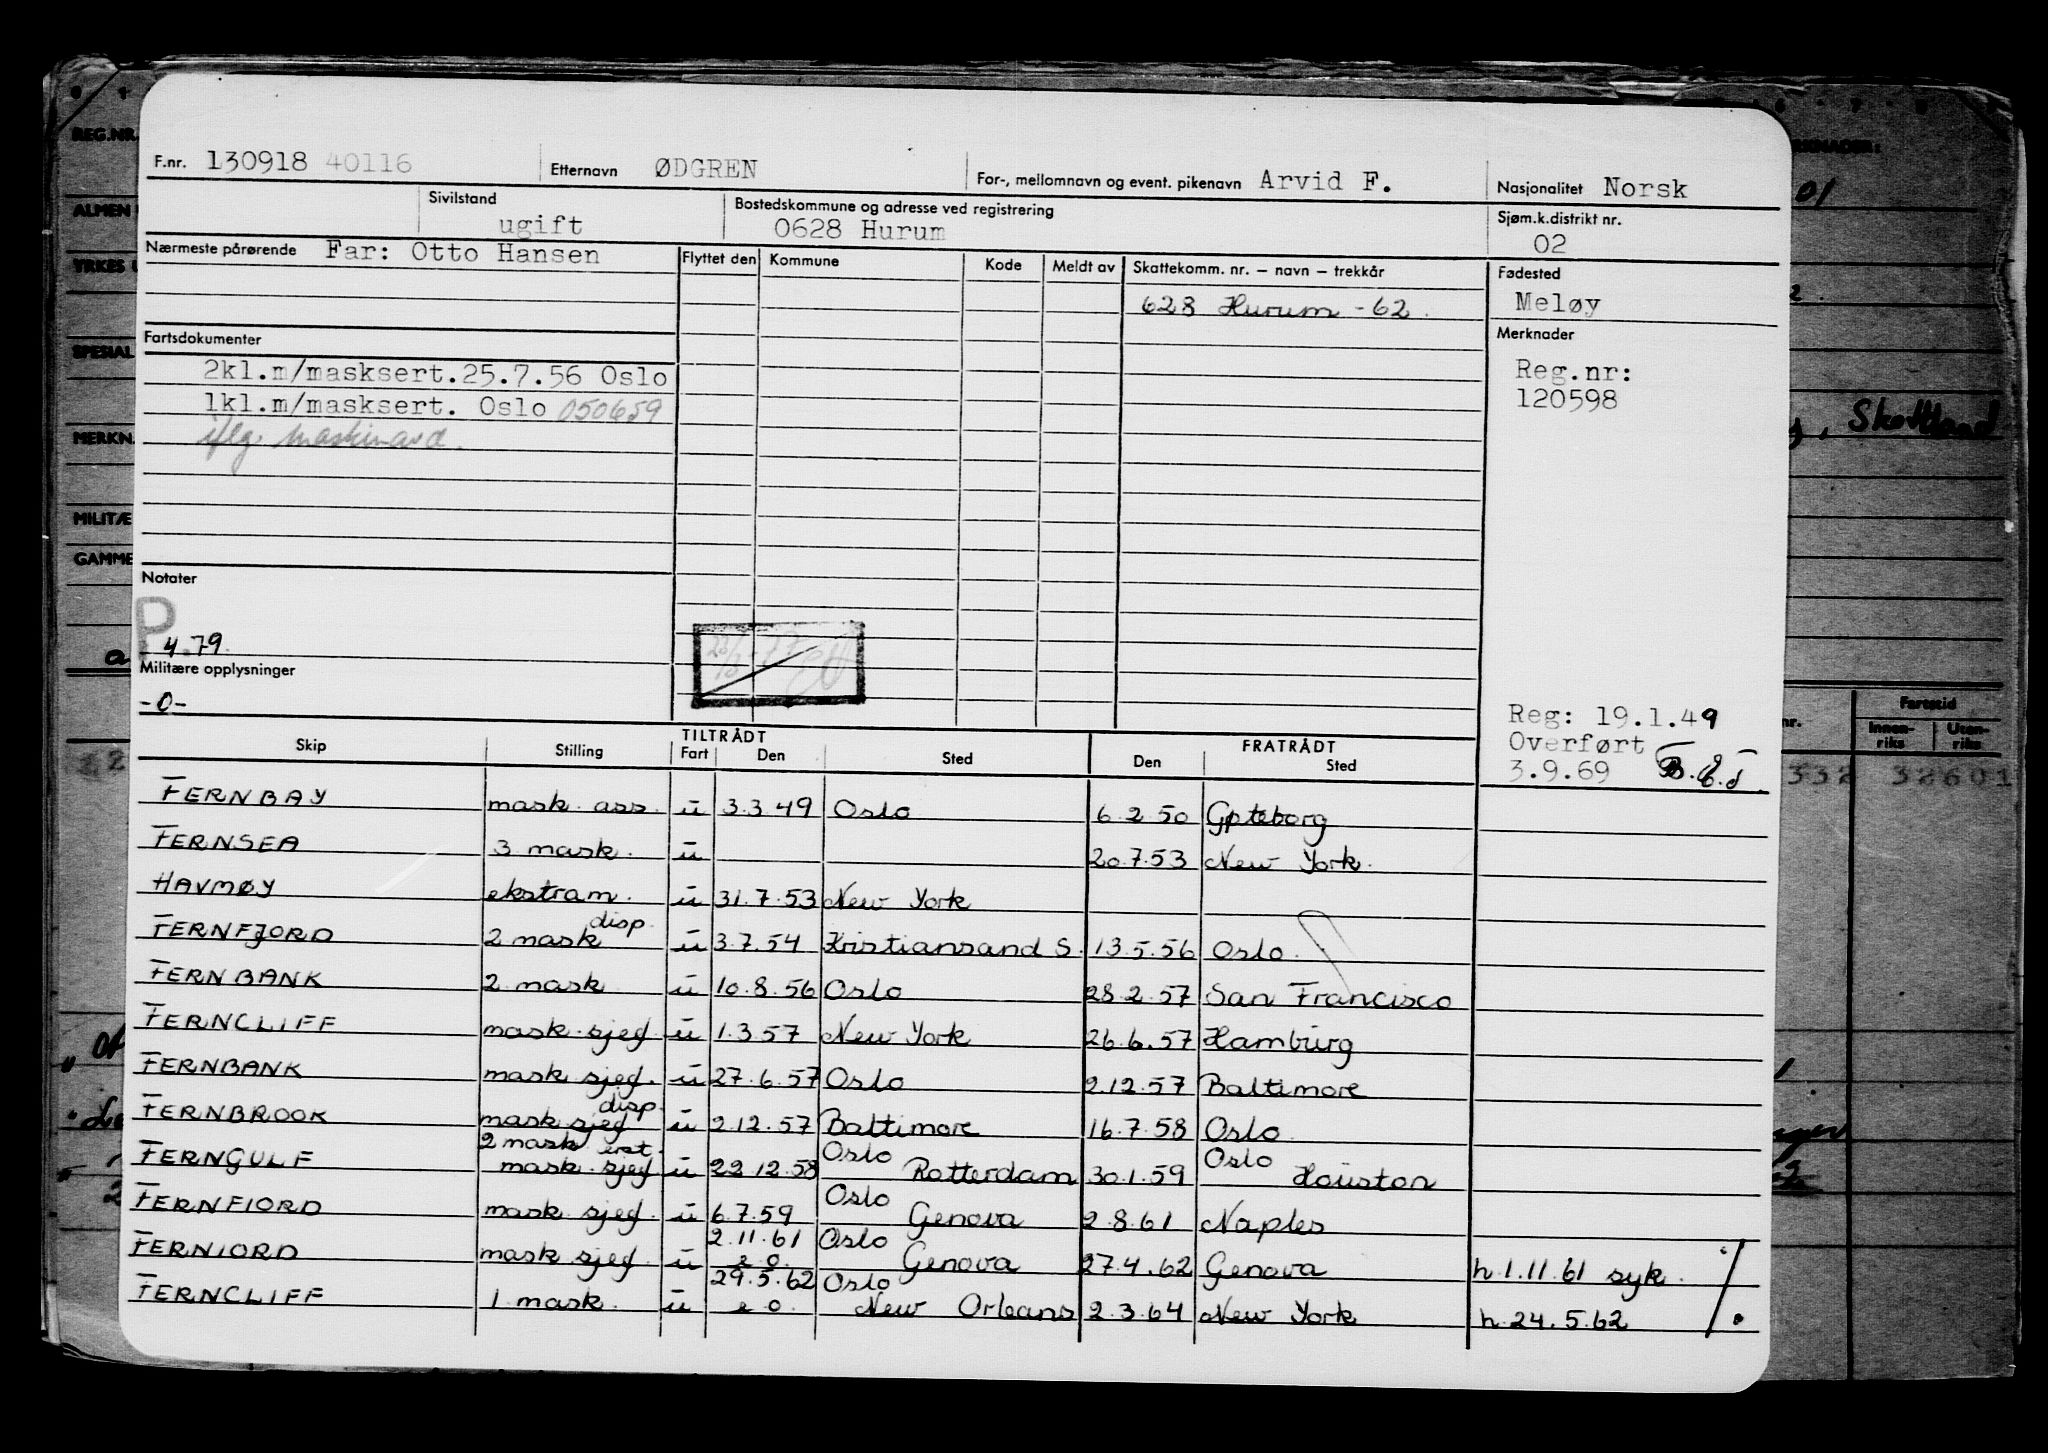 F.nr. 130918 40116 Etternavn ØDGREN For-, mellomnavn og event. pikenavn Arvid F. Nasjonalitet Norsk
Sivilstand ugift Bostedskommune og adresse ved registrering 0628 Hurum Sjøm.k.distrikt nr. 02
Nærmeste pårørende Far: Otto Hansen Flyttet den Kommune Kode Meldt av Skattekomm. nr. – navn – trekkår Fødested
628 Hurum - 62. Meløy
Fartsdokumenter Merknader
2kl.m/masksert.25.7.56 Oslo Reg.nr:
1kl.m/masksert. Oslo 050659 120598
iflg. maskinavd.
Notater
P
4.79.
Militære opplysninger
-0-
Reg: 19.1.49
Overført
3.9.69
Skip Stilling TILTRÅDT Fart Den Sted FRATRÅDT Den Sted
FERNBAY mask. ass. u 3.3.49 Oslo 6.2.50 Gøteborg
FERNSEA 3 mask. u 20.7.53 New York.
HAVMØY ekstram. u 31.7.53 New York
FERNFJORD 2 mask disp. u 3.7.54 Kristiansand S. 13.5.56 Oslo.
FERNBANK 2 mask u 10.8.56 Oslo 28.2.57 San Francisco
FERNCLIFF mask.sjef. u 1.3.57 New York 26.6.57 Hamburg
FERNBANK mask sjef. u 27.6.57 Oslo 2.12.57 Baltimore
FERNBROOK mask sjef disp. u 2.12.57 Baltimore 16.7.58 Oslo.
FERNGULF 2 mask erst. mask.sjef u 22.12.58 Oslo Rotterdam 30.1.59 Oslo Houston
FERNFIORD mask sjef. u 6.7.59 Oslo Genova 2.8.61 Naples
FERNIORD mask sjef. u 2.11.61 e.o. Oslo Genova 27.4.62 Genova h.1.11.61 syk.
FERNCLIFF 1 mask. u 29.5.62 e.o. Oslo New Orleans 2.3.64 New York h.24.5.62
REG.NR.
ALMEN
YRKES
SPESIAL
MERKN
MILITÆ
GAMME
01
Skottland
Fartstid
Innen-riks Uten-riks
332 32601